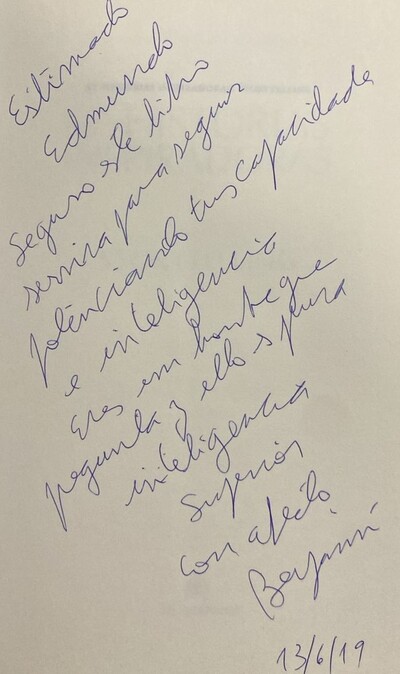 Estimado
Edmundo
Seguro este libro
servira para seguir
potenciando tus capacidade
e inteligencia
Eres un hombre que
pregunta y ello s pura
inteligencia
Superior
con afecto
Benjamín
13/6/19